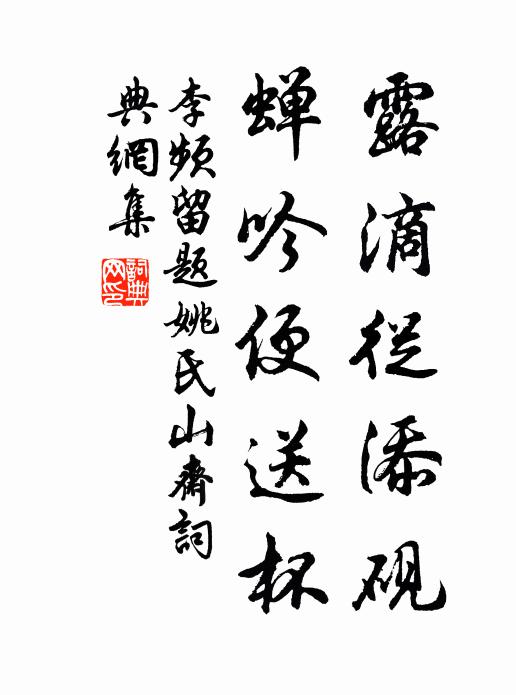 露滴從添硯
蟬吟便送杯
李頻留題姚氏山齋詞
典網集
詞典
网印